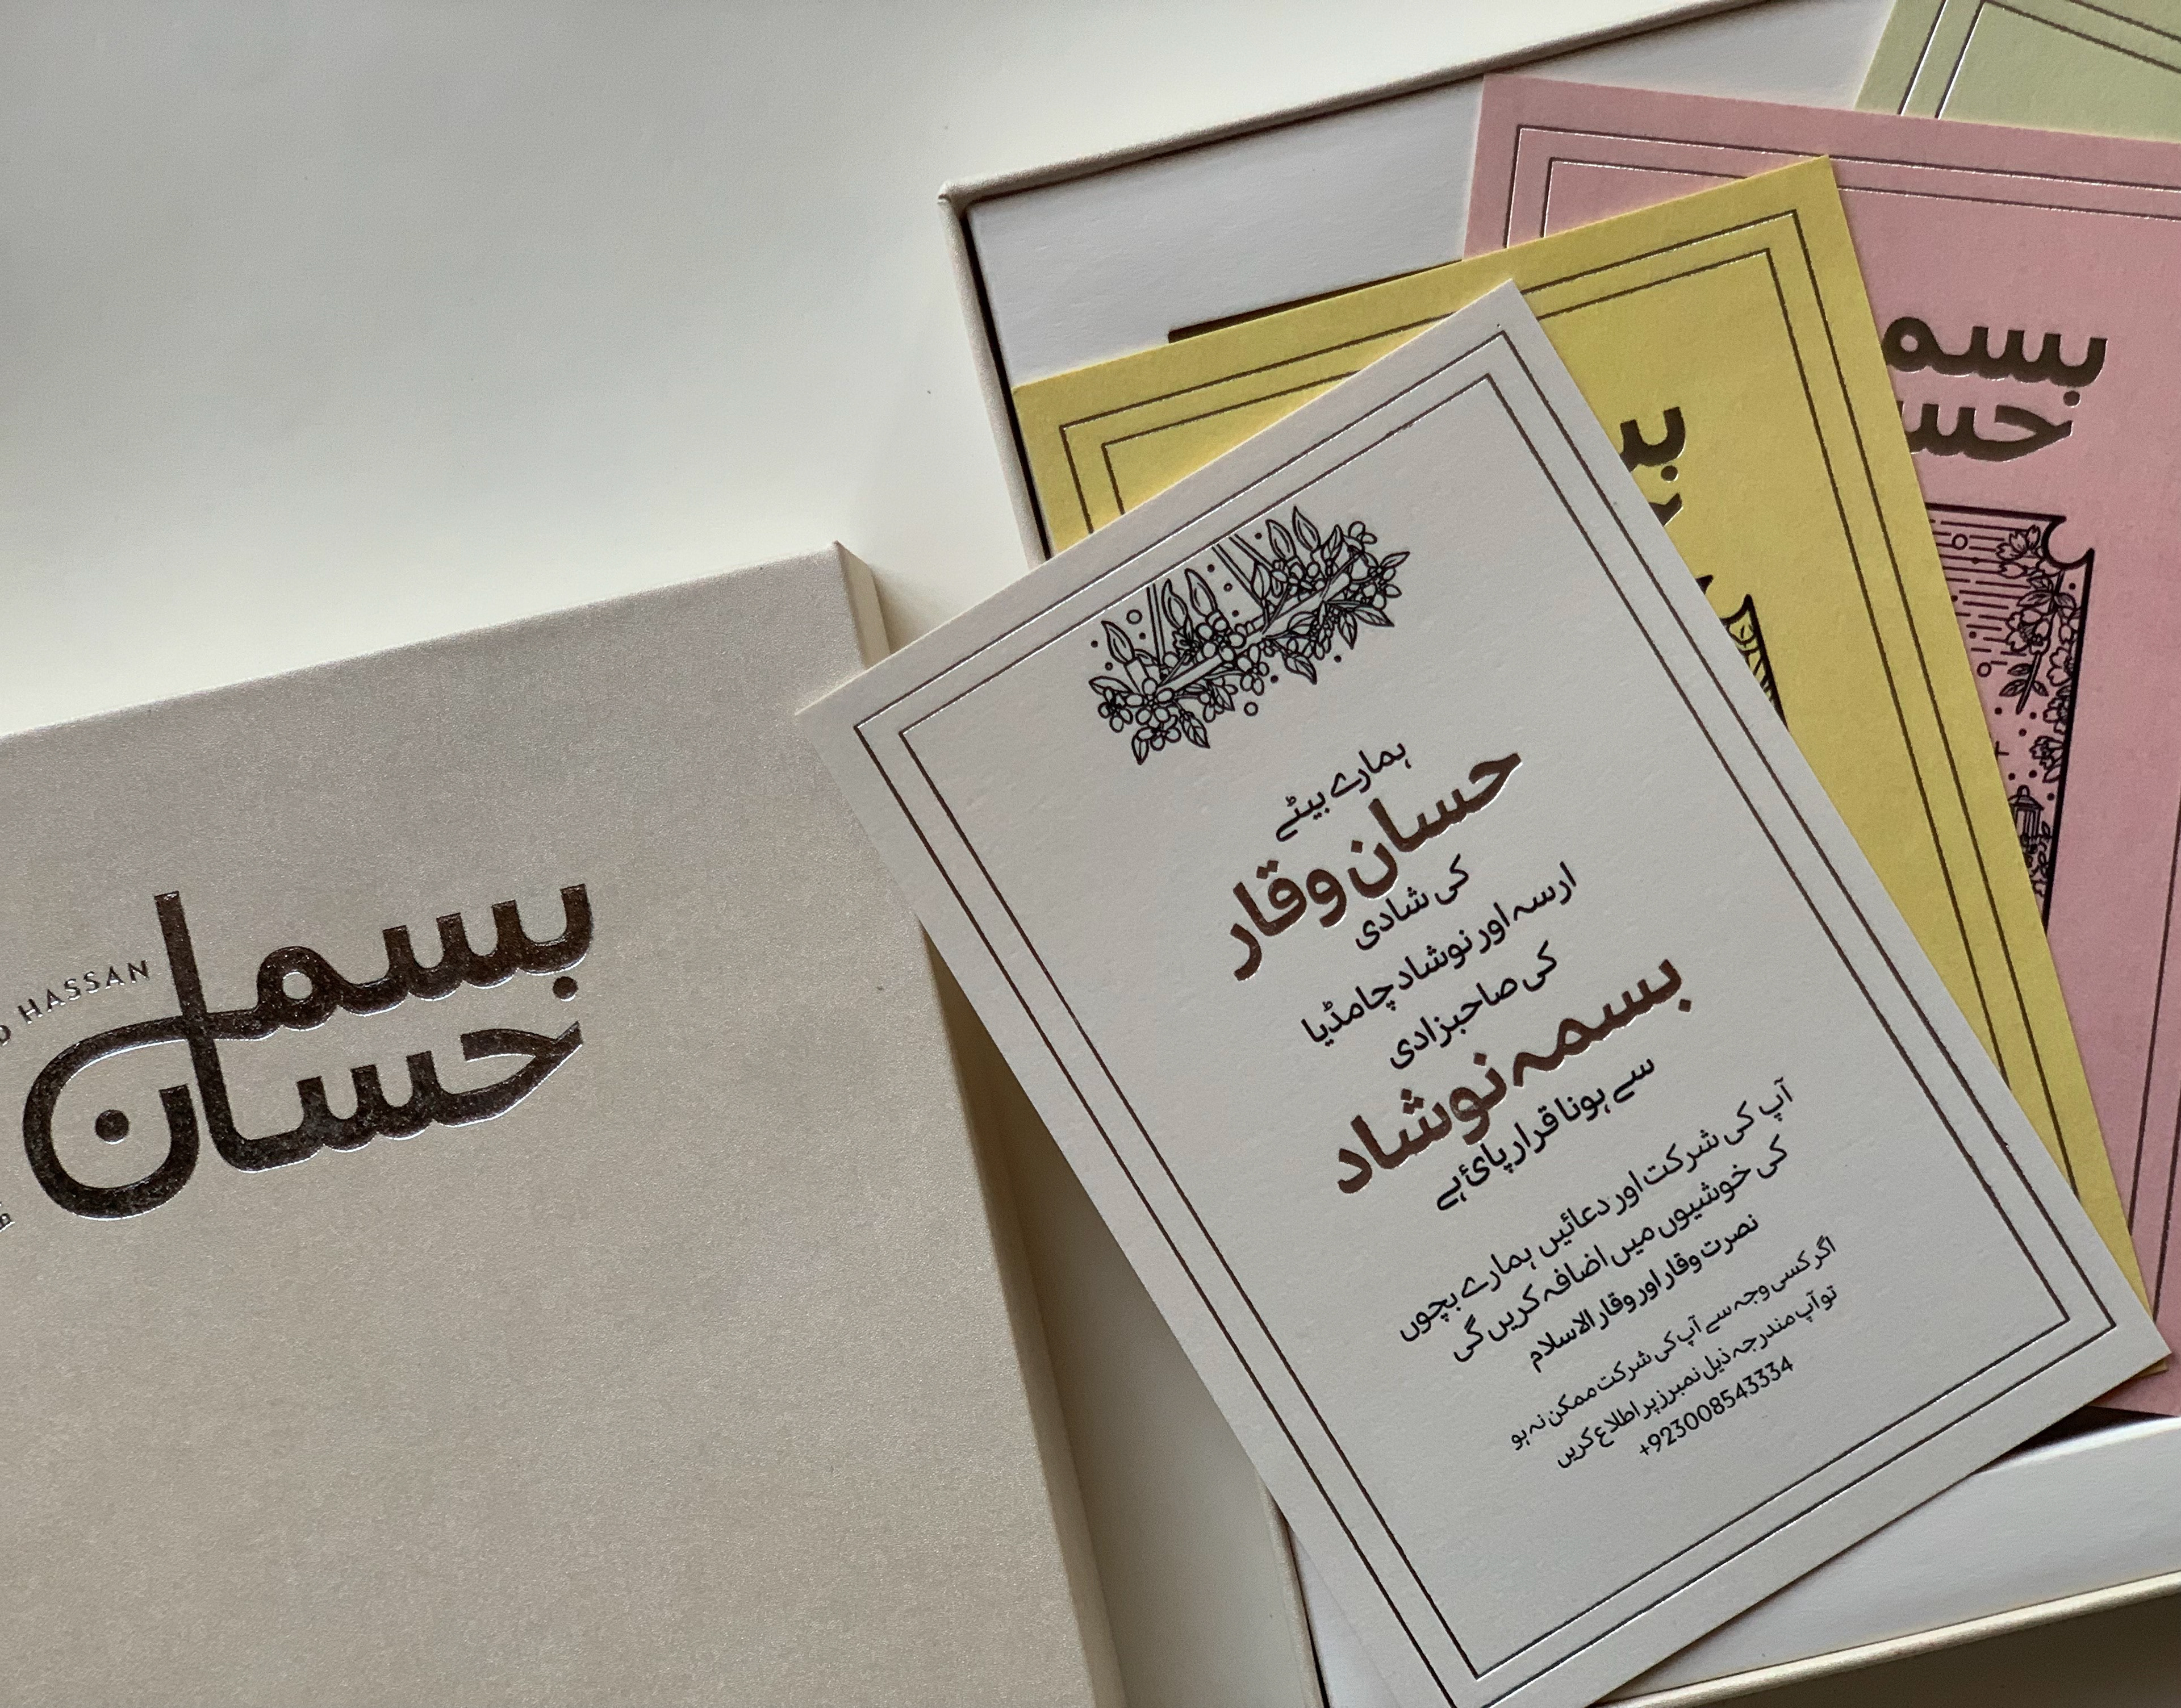 HASSAN
بسما
حسان
ہمارے بیٹے
حسان وقار
کی شادی
ارسہ اور نوشاد چامڈیا
کی صاحبزادی
بسمہ نوشاد
سے ہونا قرار پائ ہے
آپ کی شرکت اور دعائیں ہمارے بچوں
کی خوشیوں میں اضافہ کریں گی
نصرت وقار اور وقار الاسلام
اگر کسی وجہ سے آپ کی شرکت ممکن نہ ہو
تو آپ مندرجہ ذیل نمبرز پر اطلاع کریں
+923008543334
بسم
حس